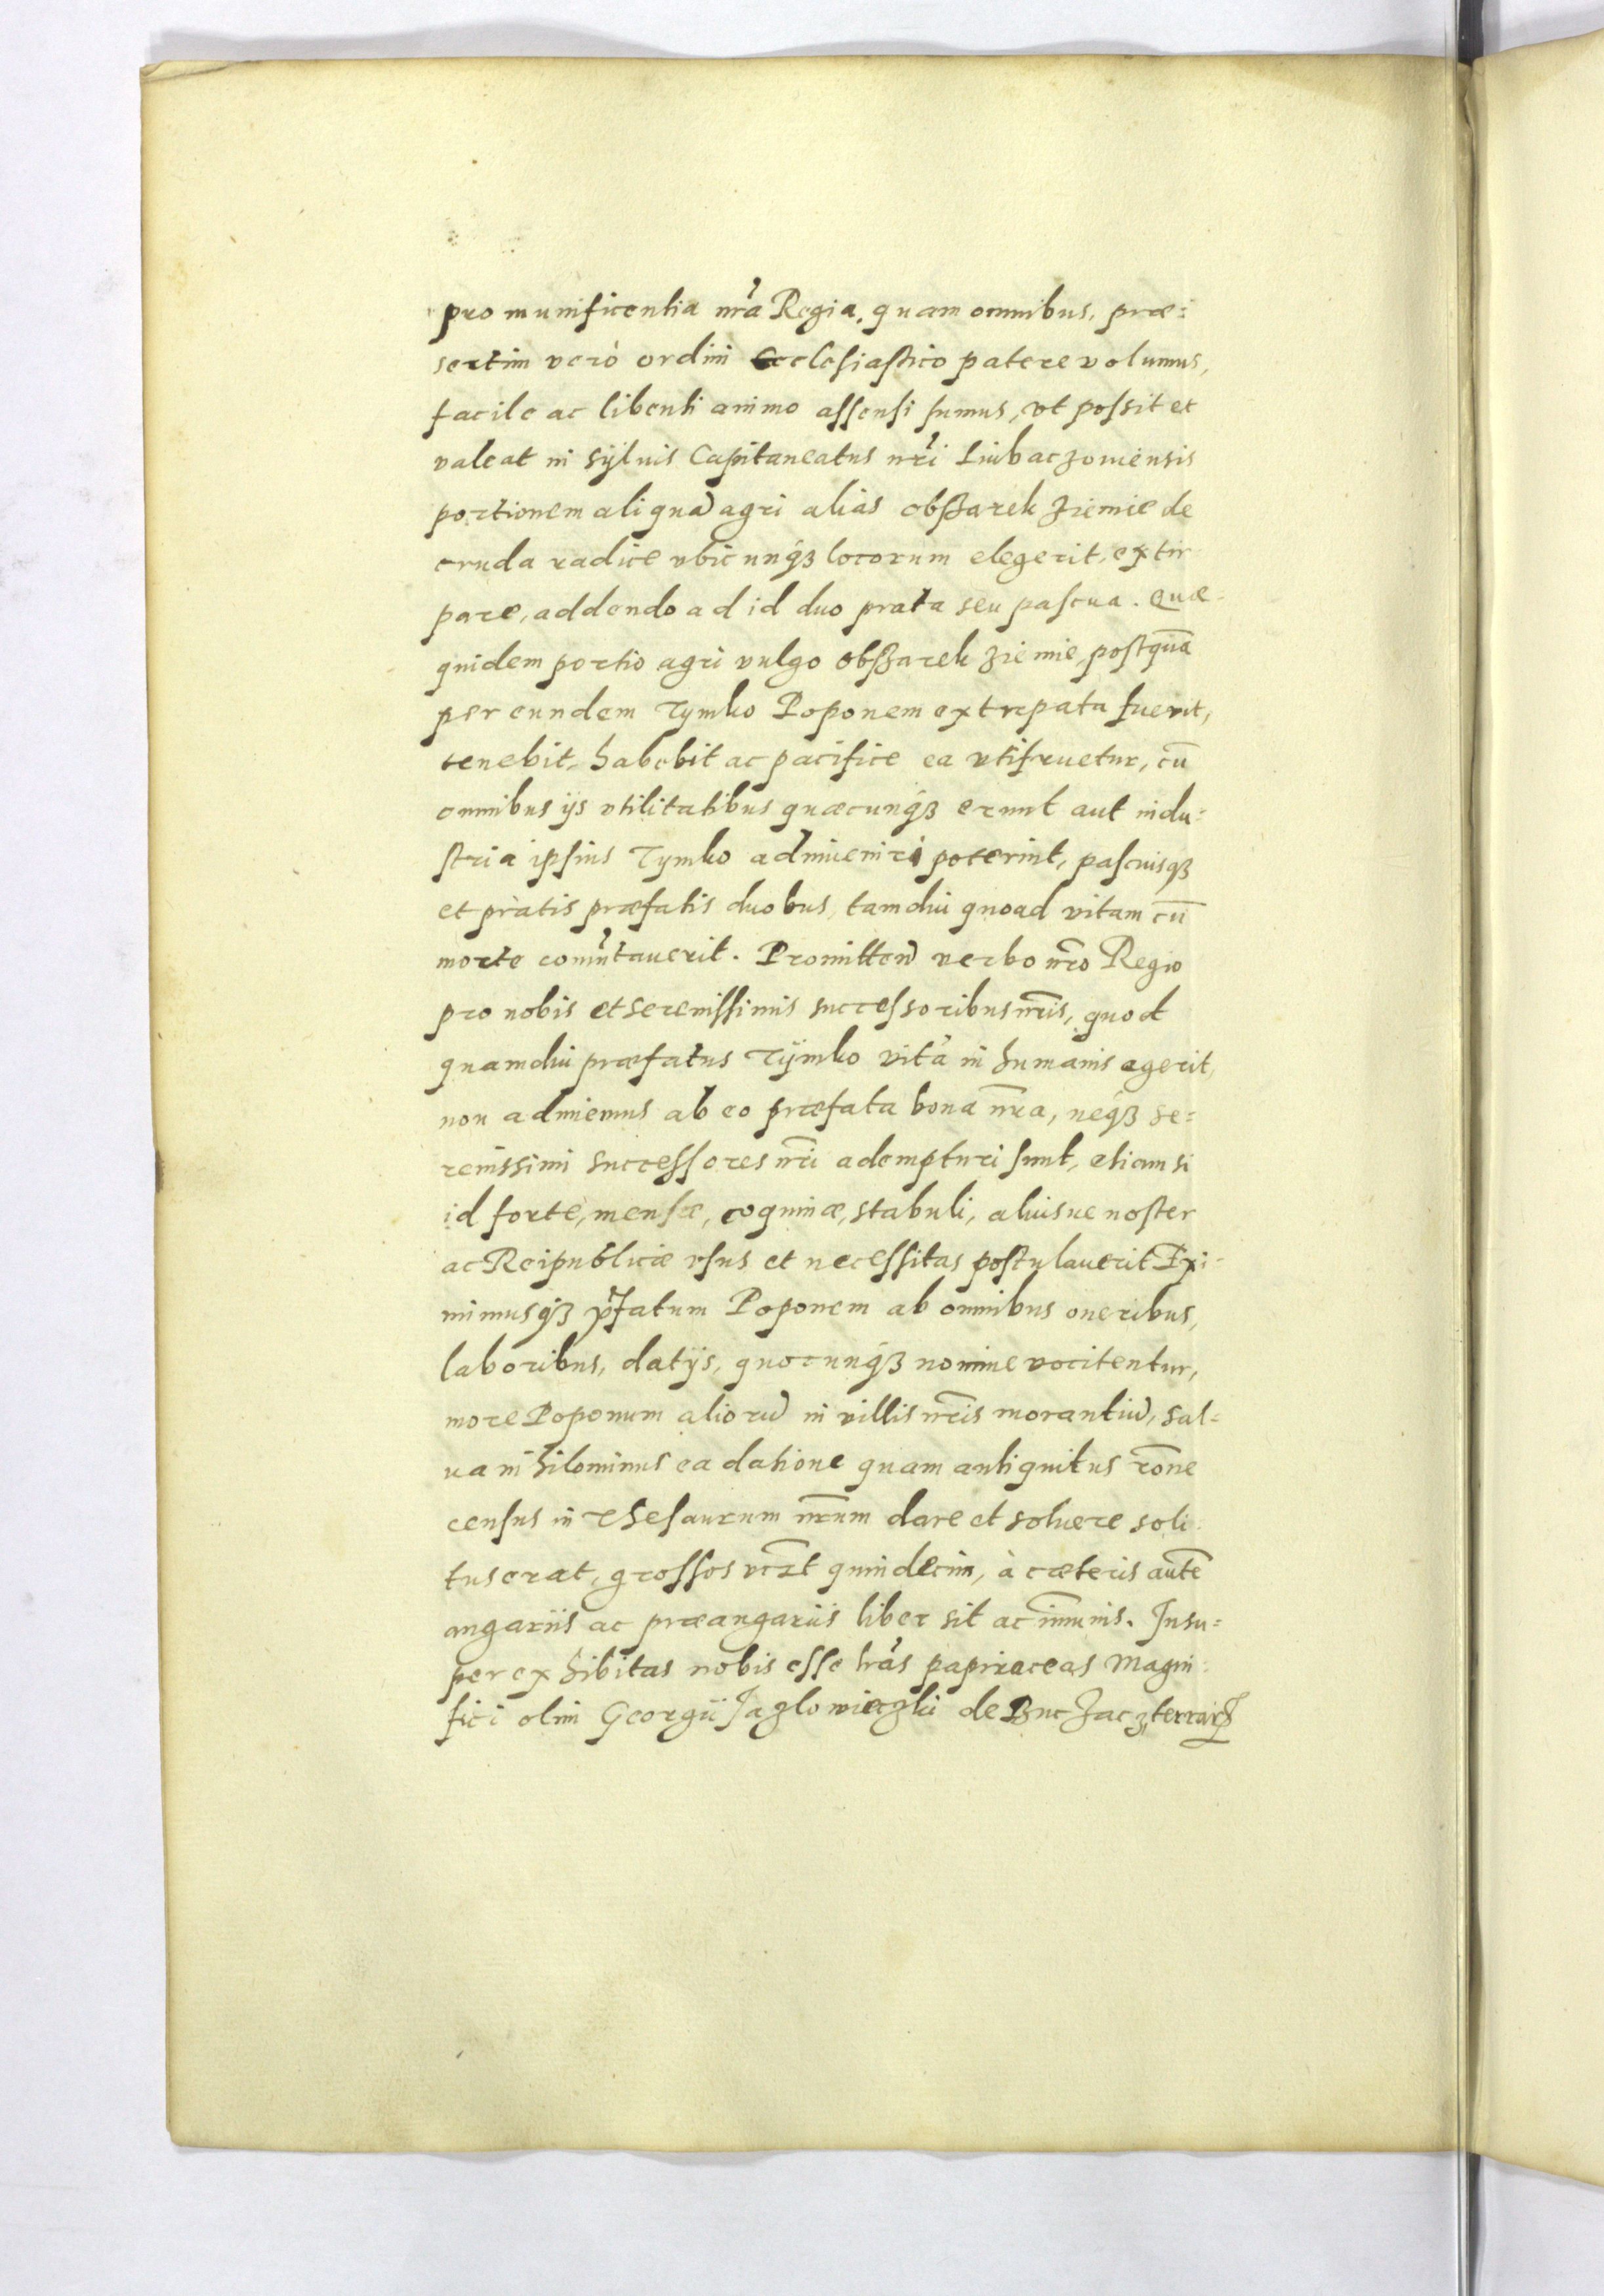 pro munificentia nr̃a Regia, quam omnibus, præ:
sertim verò ordini Ecclesiastico patere volumus,
facile ac libenti animo assensi sumus, vt possit et
valeat in sÿluis Capitaneatus nr̃i Liubaczouiensis
portionem aliquã agri alias obszarek ziemie de
cruda radice vbicunq́ꝫ locorum elegerit, extir
pare, addendo ad id duo prata seu pascua. Quæ
quidem portio agri vulgo obszarek ziemie, postquã
per eundem Tymko Poponem extrepata fuerit,
tenebit, habebit ac pacifice ea vtifruetur, cũ
omnibus ijs vtilitatibus quæcunq́ꝫ erunt aut indu:
stria ipsius Tymko adinueniri poterint, pascuisqꝫ
et pratis præfatis duobus, tamdiu quoad vitam cũ
morte com̃utauerit. Promitten̄ verbo nr̃o Regio
pro nobis et serenissimis successoribus nr̃is, quod
quamdiu præfatus Tÿmko vitã in humanis egerit,
non adimemus ab eo præfata bona nr̃a, neq́ꝫ se:
renissimi successores nr̃i adempturi sunt, etiam si
id fortè, mensæ, coquinæ, stabuli, aliusue noster
ac Reipublicæ vsus et necessitas postulauerit Exi:
mimusq́ꝫ p̃fatum Poponem ab omnibus oneribus,
laboribus, datijs, quocunq́ꝫ nomine vocitentur,
more Poponum aliorũ in villis nr̃is morantiũ, sal:
ua nihilominus ea datione quam antiquitus rõne
census in thesaurum nr̃um dare et soluere soli
tus erat, grossos vcz̃t quindecim, à cæteris autẽ
angariis ac præangariis liber sit ac im̃unis. Insu:
per exhibitas nobis esse lr̃as papiraceas Magni
fici olim Georgii Jazlowieczki de Buczacz, terrarꝫ